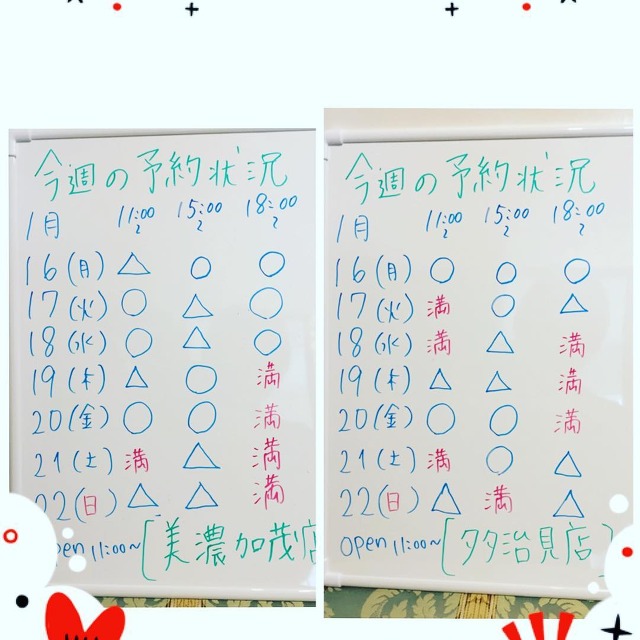 今週の予約状況
1月 11:00~ 15:00~ 18:00~
16(月) △ ○ ○
17(火) ○ △ ○
18(水) ○ △ ○
19(木) △ ○ 満
20(金) ○ ○ 満
21(土) 満 △ 満
22(日) △ △ 満
open 11:00~ [美濃加茂店
今週の予約状況
1月 11:00~ 15:00~ 18:00~
16(月) ○ ○ ○
17(火) 満 ○ △
18(水) 満 △ 満
19(木) △ △ 満
20(金) ○ ○ 満
21(土) 満 ○ △
22(日) △ 満 △
open 11:00~ [多治見店]